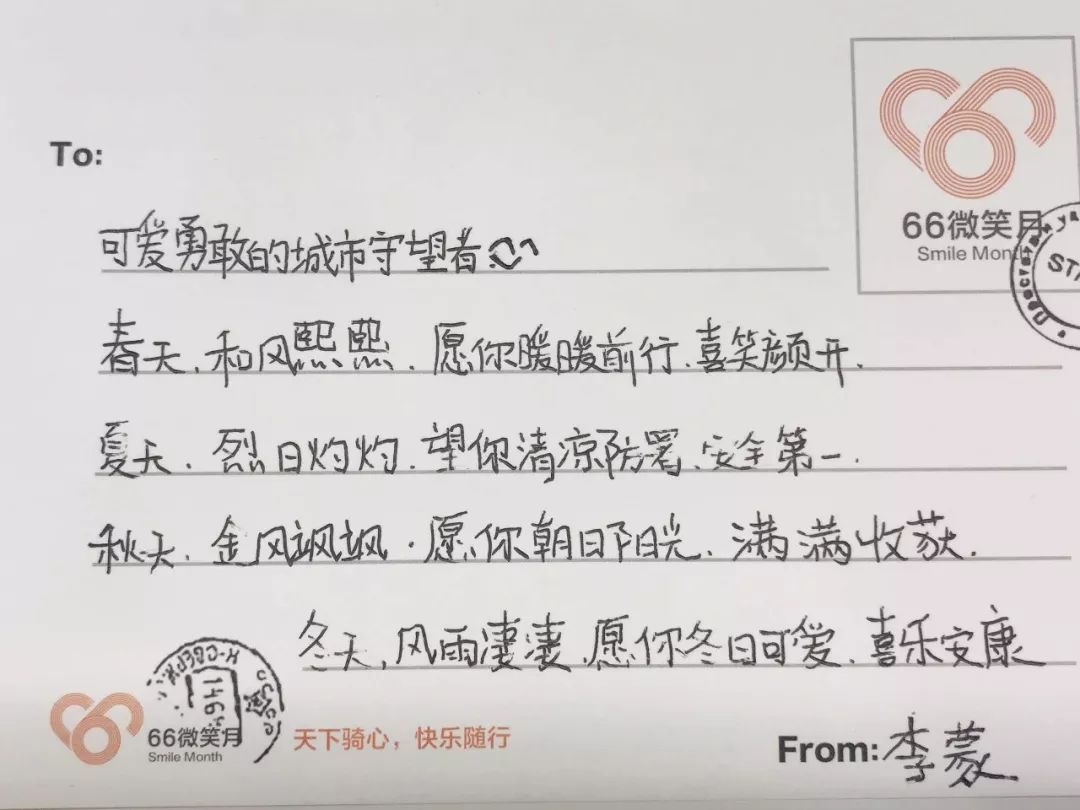 To:
66微笑月
Smile Month
可爱勇敢的城市守望者:
春天,和风熙熙,愿你暖暖前行,喜笑颜开.
夏天,烈日灼灼,望你清凉防署,安全第一.
秋天,金风飒飒,愿你朝日阳光,满满收获.
冬天,风雨凄凄,愿你冬日可爱,喜乐安康
66微笑月
Smile Month
天下骑心，快乐随行
From:李蒙